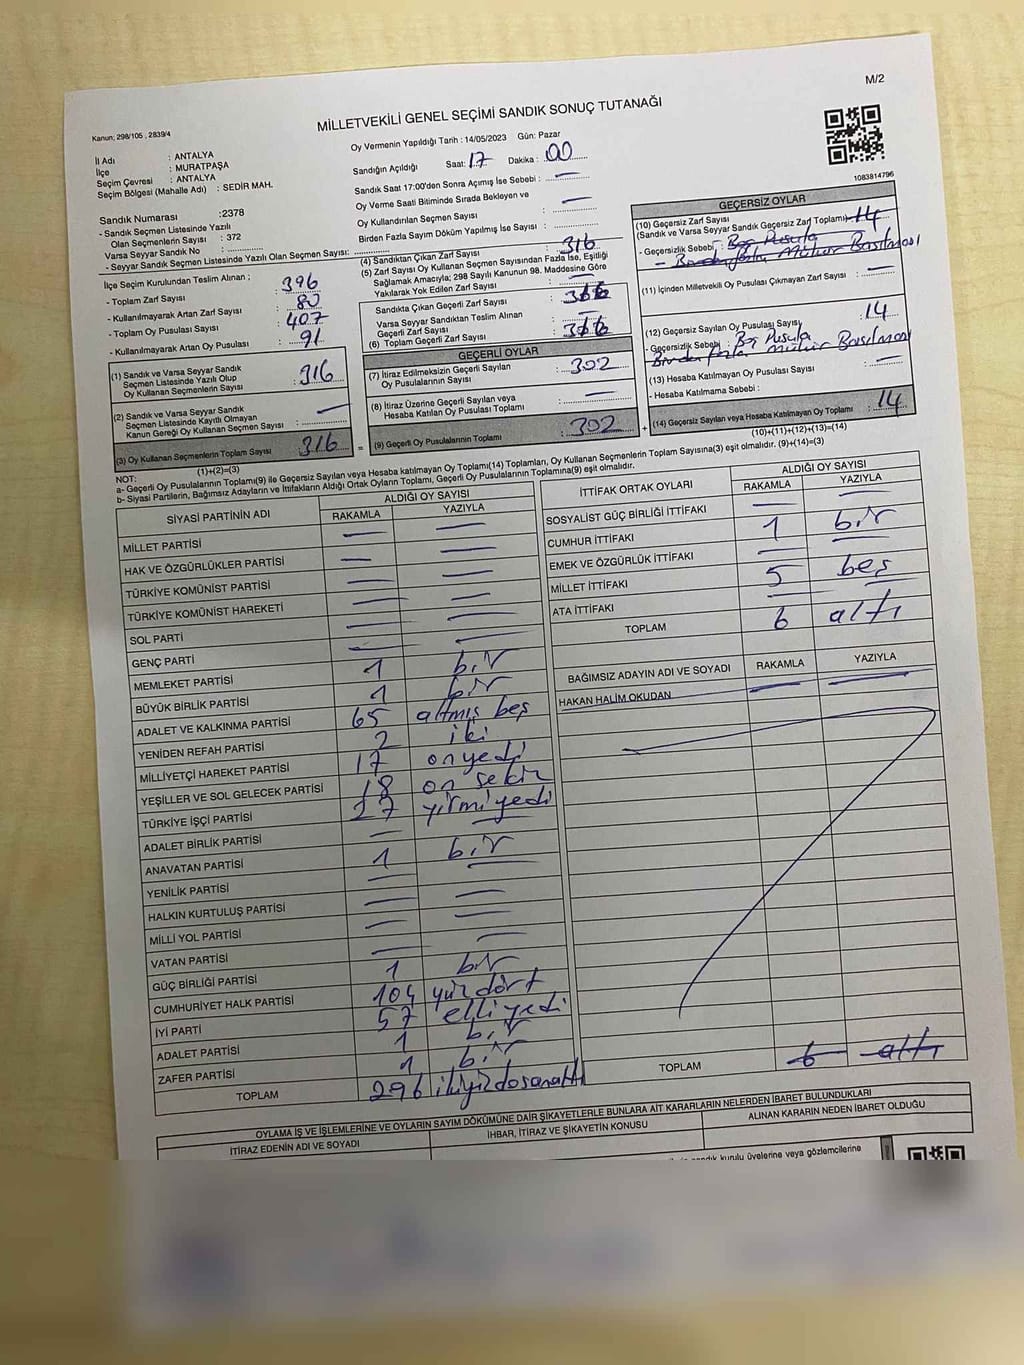 M/2
Kanun; 298/105 , 2839/4
MİLLETVEKİLİ GENEL SEÇİMİ SANDIK SONUÇ TUTANAĞI
İl Adı : ANTALYA
İlçe : MURATPAŞA
Seçim Çevresi : ANTALYA
Seçim Bölgesi (Mahalle Adı) : SEDİR MAH.
Sandık Numarası :2378
- Sandık Seçmen Listesinde Yazılı
Olan Seçmenlerin Sayısı : 372
Varsa Seyyar Sandık No :
- Seyyar Sandık Seçmen Listesinde Yazılı Olan Seçmen Sayısı:
Oy Vermenin Yapıldığı Tarih : 14/05/2023 Gün: Pazar
Sandığın Açıldığı Saat: 17 Dakika : 00
Sandık Saat 17:00'den Sonra Açımış İse Sebebi : —
Oy Verme Saati Bitiminde Sırada Bekleyen ve
Oy Kullandırılan Seçmen Sayısı : —
Birden Fazla Sayım Döküm Yapılmış İse Sayısı :
1083814796
İlçe Seçim Kurulundan Teslim Alınan ;
- Toplam Zarf Sayısı : 396
- Kullanılmayarak Artan Zarf Sayısı : 80
- Toplam Oy Pusulası Sayısı : 407
- Kullanılmayarak Artan Oy Pusulası : 91
(1) Sandık ve Varsa Seyyar Sandık
Seçmen Listesinde Yazılı Olup
Oy Kullanan Seçmenlerin Sayısı : 316
(2) Sandık ve Varsa Seyyar Sandık
Seçmen Listesinde Kayıtlı Olmayan
Kanun Gereği Oy Kullanan Seçmen Sayısı : —
(3) Oy Kullanan Seçmenlerin Toplam Sayısı : 316
(1)+(2)=(3)
(4) Sandıktan Çıkan Zarf Sayısı : 316
(5) Zarf Sayısı Oy Kullanan Seçmen Sayısından Fazla İse, Eşitliği
Sağlamak Amacıyla; 298 Sayılı Kanunun 98. Maddesine Göre
Yakılarak Yok Edilen Zarf Sayısı : —
Sandıkta Çıkan Geçerli Zarf Sayısı :
Varsa Seyyar Sandıktan Teslim Alınan
Geçerli Zarf Sayısı : —
(6) Toplam Geçerli Zarf Sayısı :
GEÇERLİ OYLAR
(7) İtiraz Edilmeksizin Geçerli Sayılan
Oy Pusulalarının Sayısı : 302
(8) İtiraz Üzerine Geçerli Sayılan veya
Hesaba Katılan Oy Pusulası Toplamı : —
(9) Geçerli Oy Pusulalarının Toplamı : 302
GEÇERSİZ OYLAR
(10) Geçersiz Zarf Sayısı
(Sandık ve Varsa Seyyar Sandık Geçersiz Zarf Toplamı) 14
- Geçersizlik Sebebi : Boş Pusula
- Birden fazla Mühür Basılması
(11) İçinden Milletvekili Oy Pusulası Çıkmayan Zarf Sayısı : —
(12) Geçersiz Sayılan Oy Pusulası Sayısı : 14
- Geçersizlik Sebebi : Boş Pusula
Birden fazla Mühür Basılması
(13) Hesaba Katılmayan Oy Pusulası Sayısı : —
- Hesaba Katılmama Sebebi :
(14) Geçersiz Sayılan veya Hesaba Katılmayan Oy Toplamı : 14
(10)+(11)+(12)+(13)=(14)
NOT:
a- Geçerli Oy Pusulalarının Toplamı(9) ile Geçersiz Sayılan veya Hesaba katılmayan Oy Toplamı(14) Toplamları, Oy Kullanan Seçmenlerin Toplam Sayısına(3) eşit olmalıdır. (9)+(14)=(3)
b- Siyasi Partilerin, Bağımsız Adayların ve İttifakların Aldığı Ortak Oyların Toplamı, Geçerli Oy Pusulalarının Toplamına(9) eşit olmalıdır.
SİYASİ PARTİNİN ADI ALDIĞI OY SAYISI
RAKAMLA YAZIYLA
MİLLET PARTİSİ — —
HAK VE ÖZGÜRLÜKLER PARTİSİ — —
TÜRKİYE KOMÜNİST PARTİSİ — —
TÜRKİYE KOMÜNİST HAREKETİ — —
SOL PARTİ — —
GENÇ PARTİ — —
MEMLEKET PARTİSİ 1 bir
BÜYÜK BİRLİK PARTİSİ 1 bir
ADALET VE KALKINMA PARTİSİ 65 altmış beş
YENİDEN REFAH PARTİSİ 2 iki
MİLLİYETÇİ HAREKET PARTİSİ 17 onyedi
YEŞİLLER VE SOL GELECEK PARTİSİ 18 on sekiz
TÜRKİYE İŞÇİ PARTİSİ 27 yirmiyedi
ADALET BİRLİK PARTİSİ — —
ANAVATAN PARTİSİ 1 bir
YENİLİK PARTİSİ — —
HALKIN KURTULUŞ PARTİSİ — —
MİLLİ YOL PARTİSİ — —
VATAN PARTİSİ — —
GÜÇ BİRLİĞİ PARTİSİ 1 bir
CUMHURİYET HALK PARTİSİ 104 yüz dört
İYİ PARTİ 57 elli yedi
ADALET PARTİSİ 1 bir
ZAFER PARTİSİ 1 bir
TOPLAM 296 ikiyüzdosanaltı
İTTİFAK ORTAK OYLARI ALDIĞI OY SAYISI
RAKAMLA YAZIYLA
SOSYALİST GÜÇ BİRLİĞİ İTTİFAKI — —
CUMHUR İTTİFAKI 1 bir
EMEK VE ÖZGÜRLÜK İTTİFAKI — —
MİLLET İTTİFAKI 5 beş
ATA İTTİFAKI — —
TOPLAM 6 altı
BAĞIMSIZ ADAYIN ADI VE SOYADI RAKAMLA YAZIYLA
HAKAN HALİM OKUDAN — —
TOPLAM 6 altı
OYLAMA İŞ VE İŞLEMLERİNE VE OYLARIN SAYIM DÖKÜMÜNE DAİR ŞİKAYETLERLE BUNLARA AİT KARARLARIN NELERDEN İBARET BULUNDUKLARI
İTİRAZ EDENİN ADI VE SOYADI İHBAR, İTİRAZ VE ŞİKAYETİN KONUSU ALINAN KARARIN NEDEN İBARET OLDUĞU
sandık kurulu üyelerine veya gözlemcilerine